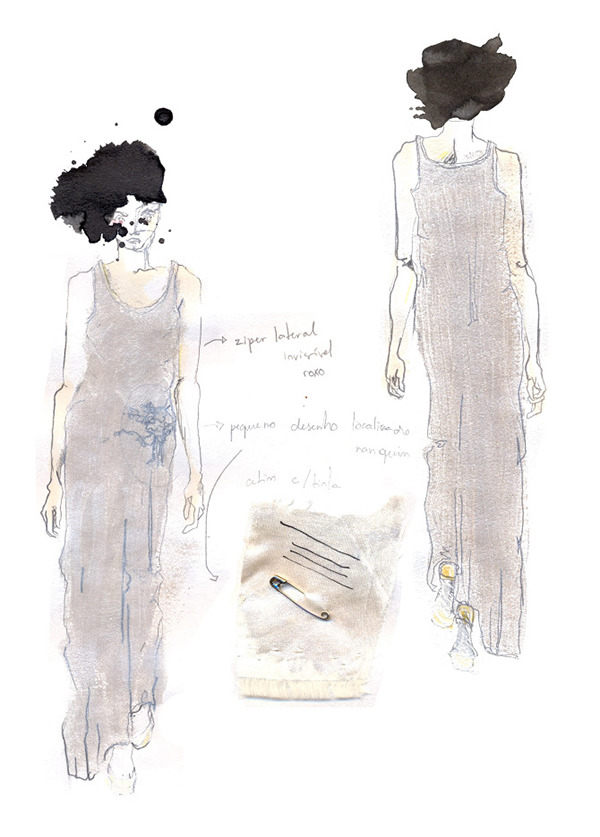 ziper lateral
invisível
roxo
pequeno desenho localizado
nanquim
cetim c/tinta